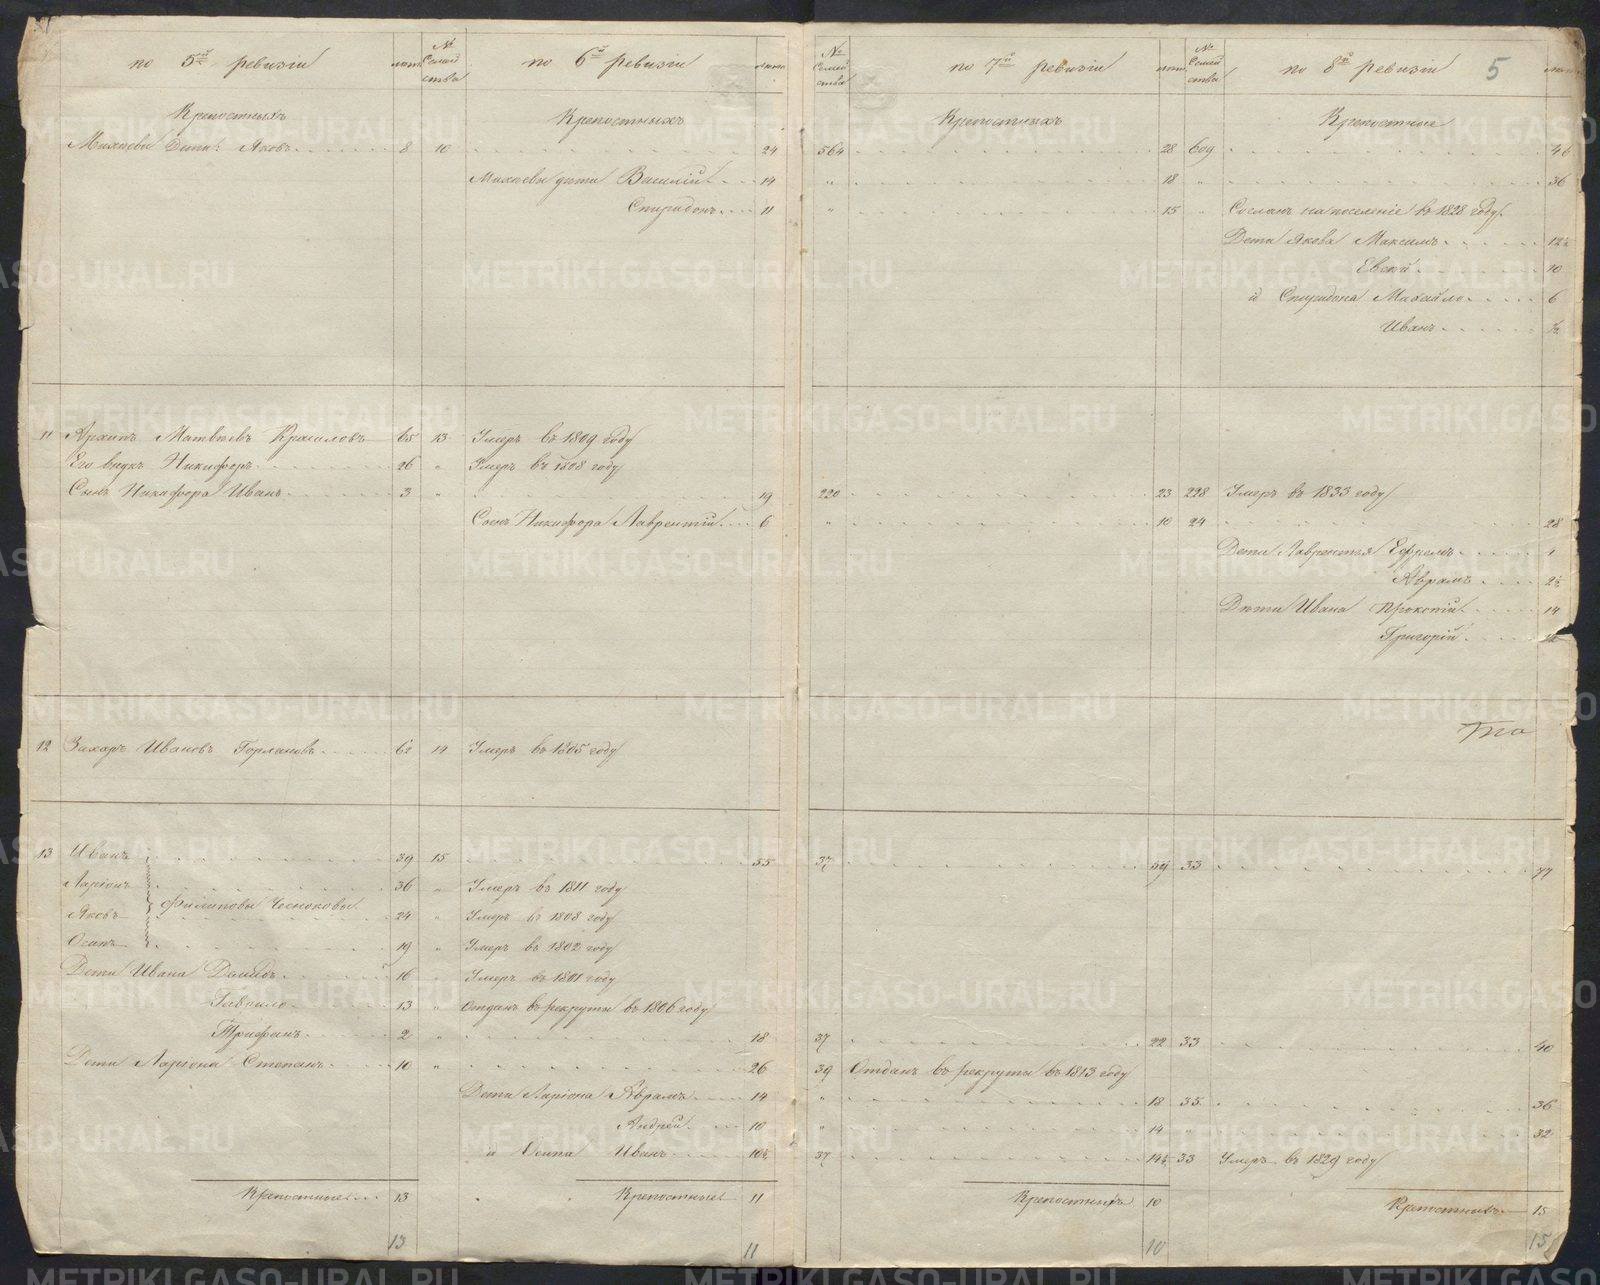 по 5й ревизiи лѣта № Семейства по 6й ревизiи лѣта № Семейства по 7й ревизiи лѣта № Семейства по 8й ревизiи 5 лѣта
Крепостныхъ Крепостныхъ Крепостныхъ Крепостные
Дети Яковъ 8 10 24 564 28 609 46
дети Василiй 14 " 18 " 36
Спиридонъ 11 " 15 " Сосланъ на поселенiе въ 1828 году
Дети Якова Максимъ 12½
Евсей 10
и Спиридона Михайло 6
Иванъ ½
11 Архипъ Матвѣевъ 65 13 Умеръ въ 1809 году
Его внукъ Никифоръ 26 " Умеръ въ 1808 году
Сынъ Никифора Иванъ 3 " 19 220 23 228 Умеръ въ 1833 году
Сынъ Никифора Лаврентiй 6 " 10 24 28
Дети Лаврентья Ефремъ
Аврамъ 2½
Дѣти Ивана Прокопiй 14
Григорiй 12
12 Захаръ Ивановъ 62 14 Умеръ въ 1805 году
13 Иванъ 39 15 55 37 59 33 77
Ларiонъ 36 " Умеръ въ 1811 году
Яковъ Филиповы Чесноковы 24 " Умеръ въ 1808 году
Осипъ 19 " Умеръ въ 1802 году
Дети Ивана Давыдъ 16 " Умеръ въ 1801 году
Гаврило 13 " Отданъ въ рекруты въ 1806 году
Трифанъ 2 " 18 37 22 33 40
Дети Ларiона Степанъ 10 " 26 39 Отданъ въ рекруты въ 1813 году
Дети Ларiона Аврамъ 14 " 18 35 36
Андрей 10 " 14 " 32
и Осипа Иванъ 10½ 37 14½ 33 Умеръ въ 1829 году
Крепостные 13 Крепостные 11 Крепостныхъ 10 Крепостныхъ 15
13 11 10 15
METRIKI.GASO-URAL.RU